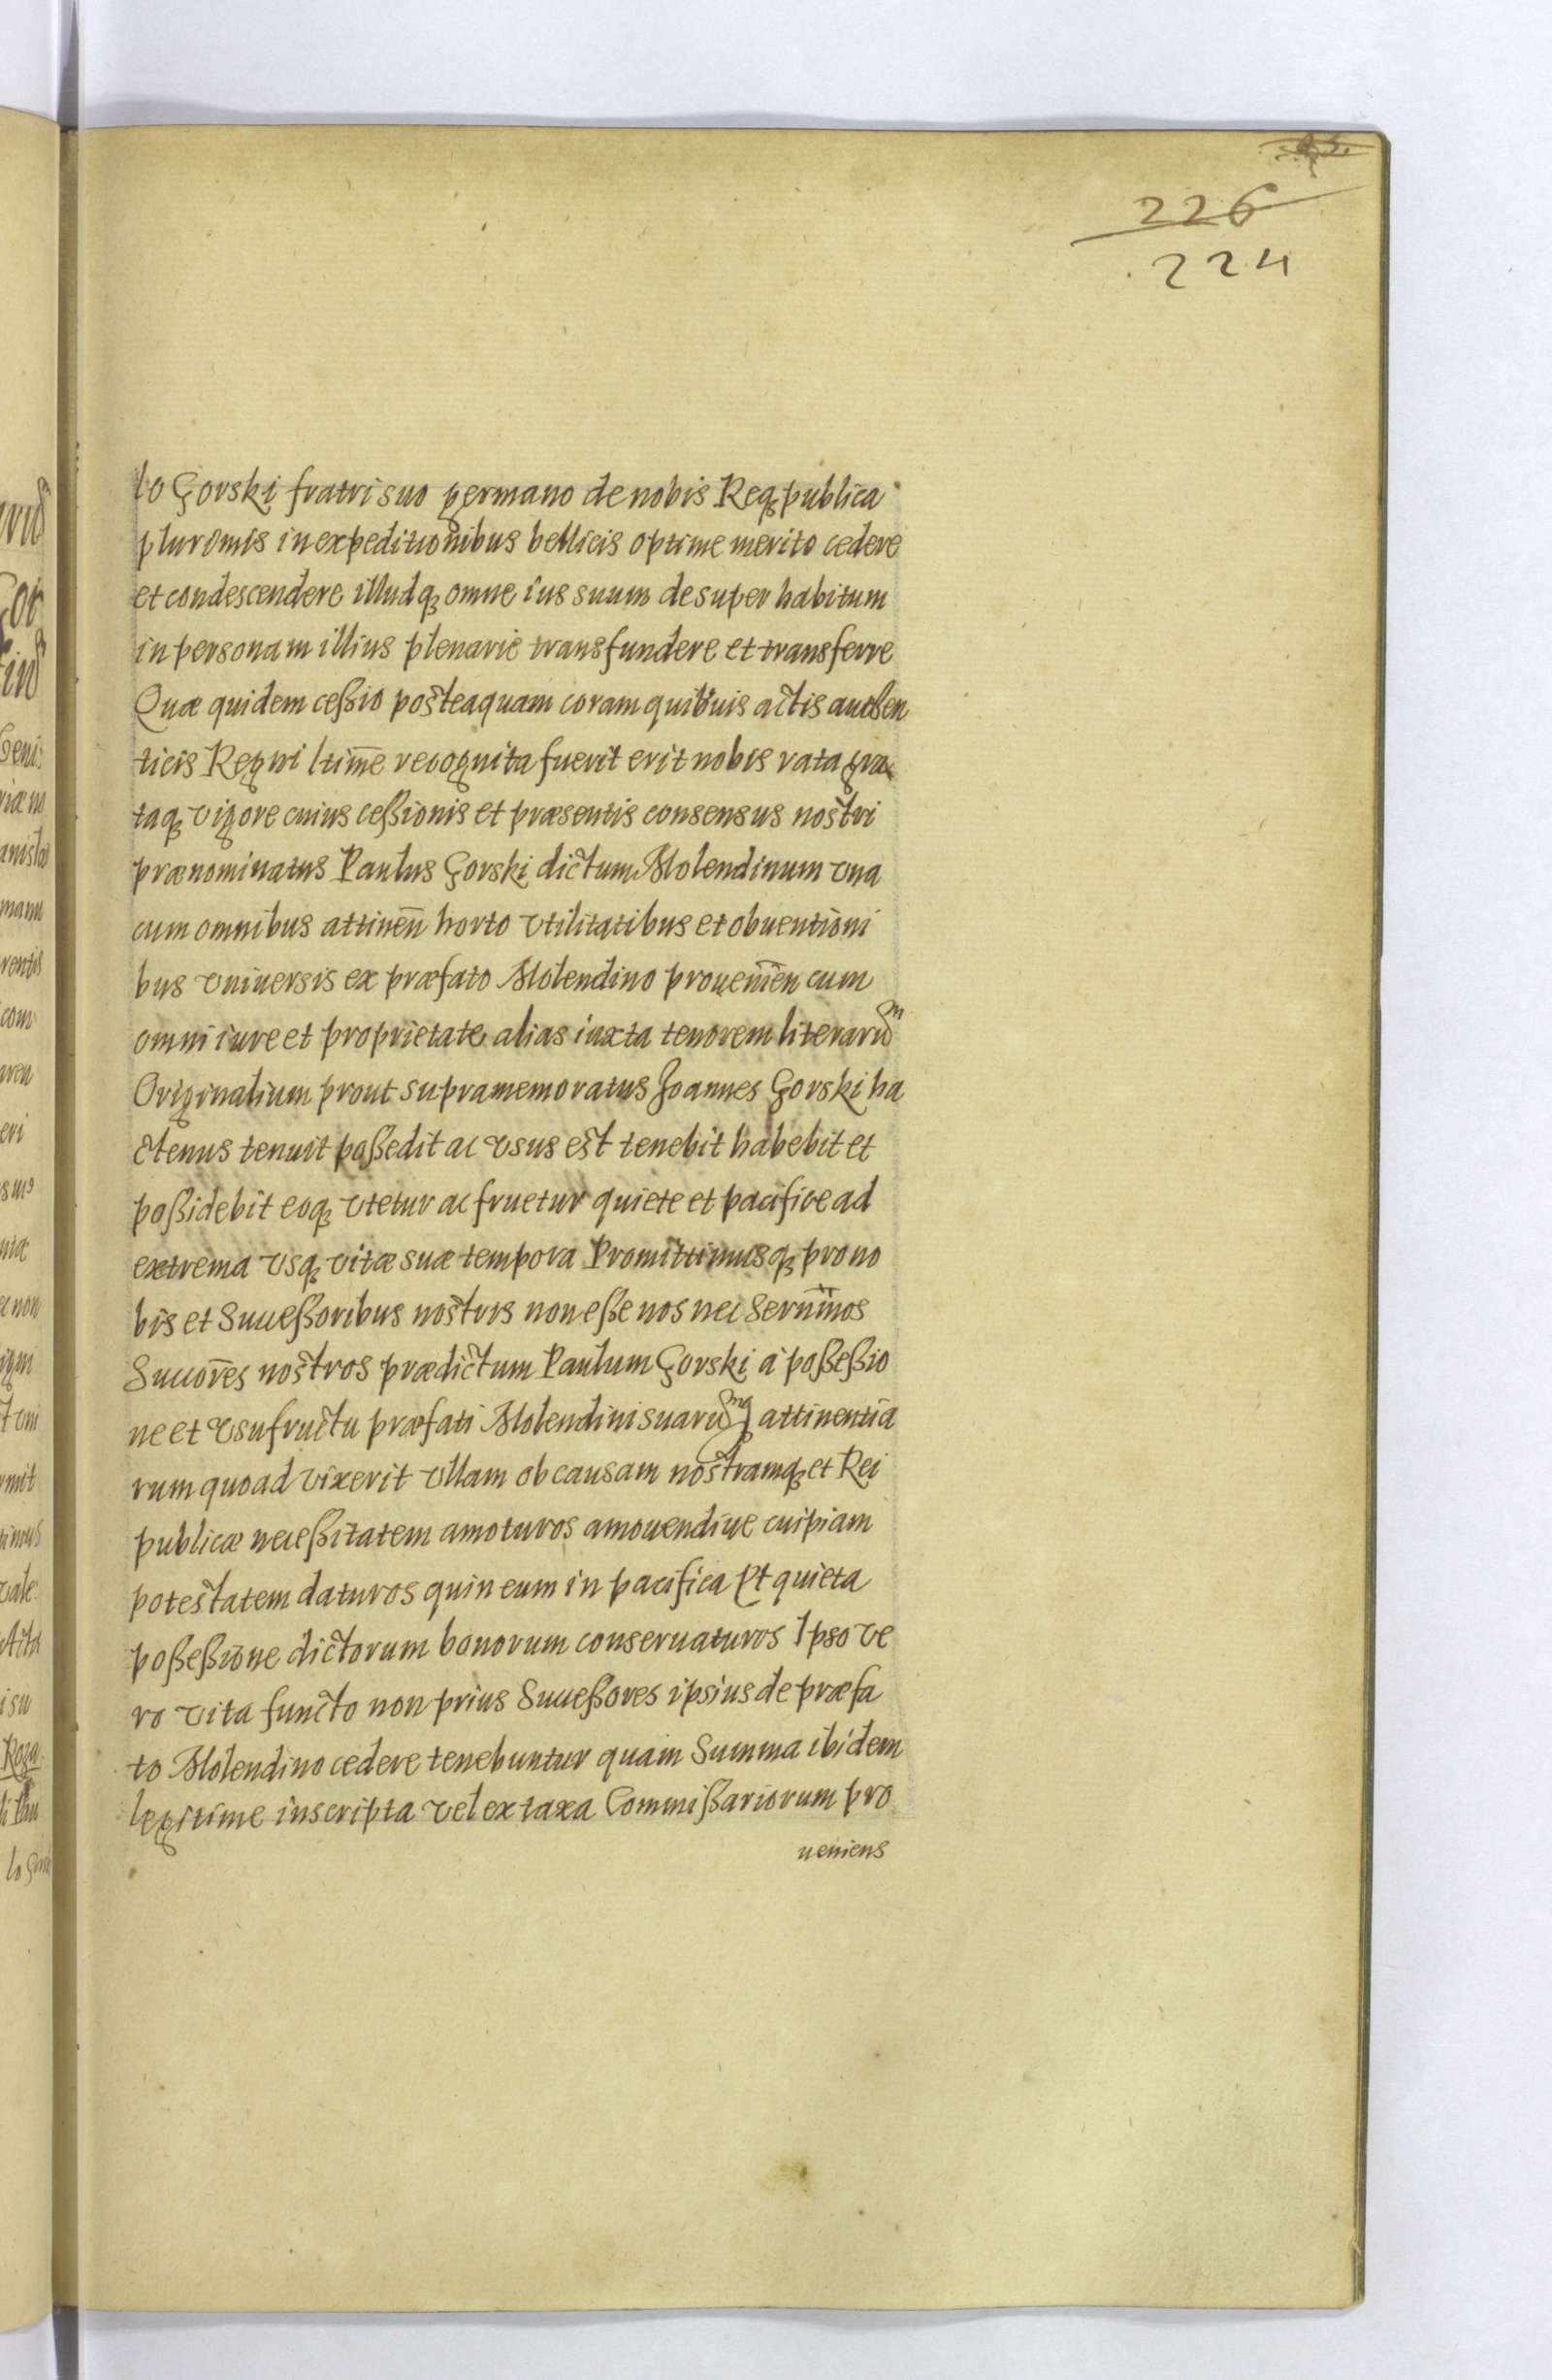 226
224
lo Gorski fratri suo germano de nobis Reqȝ publica
plurimis in expeditionibus bellicis optime merito cedere
et condescendere illudqȝ omne ius suum desuper habitum
in personam illius plenarie transfundere et transferre
Quæ quidem ceßio posteaquam coram quibuis actis authen
ticis Regni ltim̄e recognita fuerit erit nobis rata gra
taqȝ vigore cuius ceßionis et præsentis consensus nostri
prænominatus Paulus Gorski dictum Molendinum vna
cum omnibus attinen̄ horto vtilitatibus et obuentioni
bus vniuersis ex præfato Molendino prouenīen cum
omni iure et proprietate alias iuxta tenorem literarum
Originalium prout supramemoratus Joannes Gorski ha
ctenus tenuit poßedit ac vsus est tenebit habebit et
poßidebit eoqȝ vtetur ac fruetur quiete et pacifice ad
extrema vsqȝ vitæ suæ tempora Promittimusqȝ pro no
bis et Succeßoribus nostris non eße nos nec Sern̄mos
Succōres nostros prædictum Paulum Gorski à poßeßio
ne et vsufructu præfati Molendini suarumqȝ attinentia
rum quoad vixerit vllam ob causam nostramqȝ et Rei
publicæ neceßitatem amoturos amouendiue cuipiam
potestatem daturos quin eum in pacifica Et quieta
poßeßione dictorum bonorum conseruaturos Ipso ve
ro vita functo non prius Succeßores ipsius de præfa
to Molendino cedere tenebuntur quam Summa ibidem
legitime inscripta vel ex taxa Commißariorum pro
ueniens